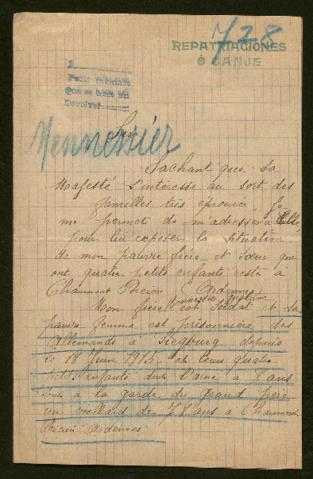 728
REPATRIACIONES
O CANJE
Mennessier
Sire
Sachant que Sa
Majesté s'intéresse au sort des
familles très éprouvées Je
me permet de m'adresser à Elle
pour lui exposer la situation
de mon pauvre frère et sœur qui
ont quatre petits enfants resté à
Chaumont Porcien Ardennes
Mon frère est Soldat et sa
pauvre femme est prisonnière des
Allemands à Siegburg depuis
le 18 Juin 1915 et leurs quatre
petits enfants dont l'aîné a 8 ans
à la garde du grand père
un vieillard de 78 ans à Chaumont
Porcien Ardennes